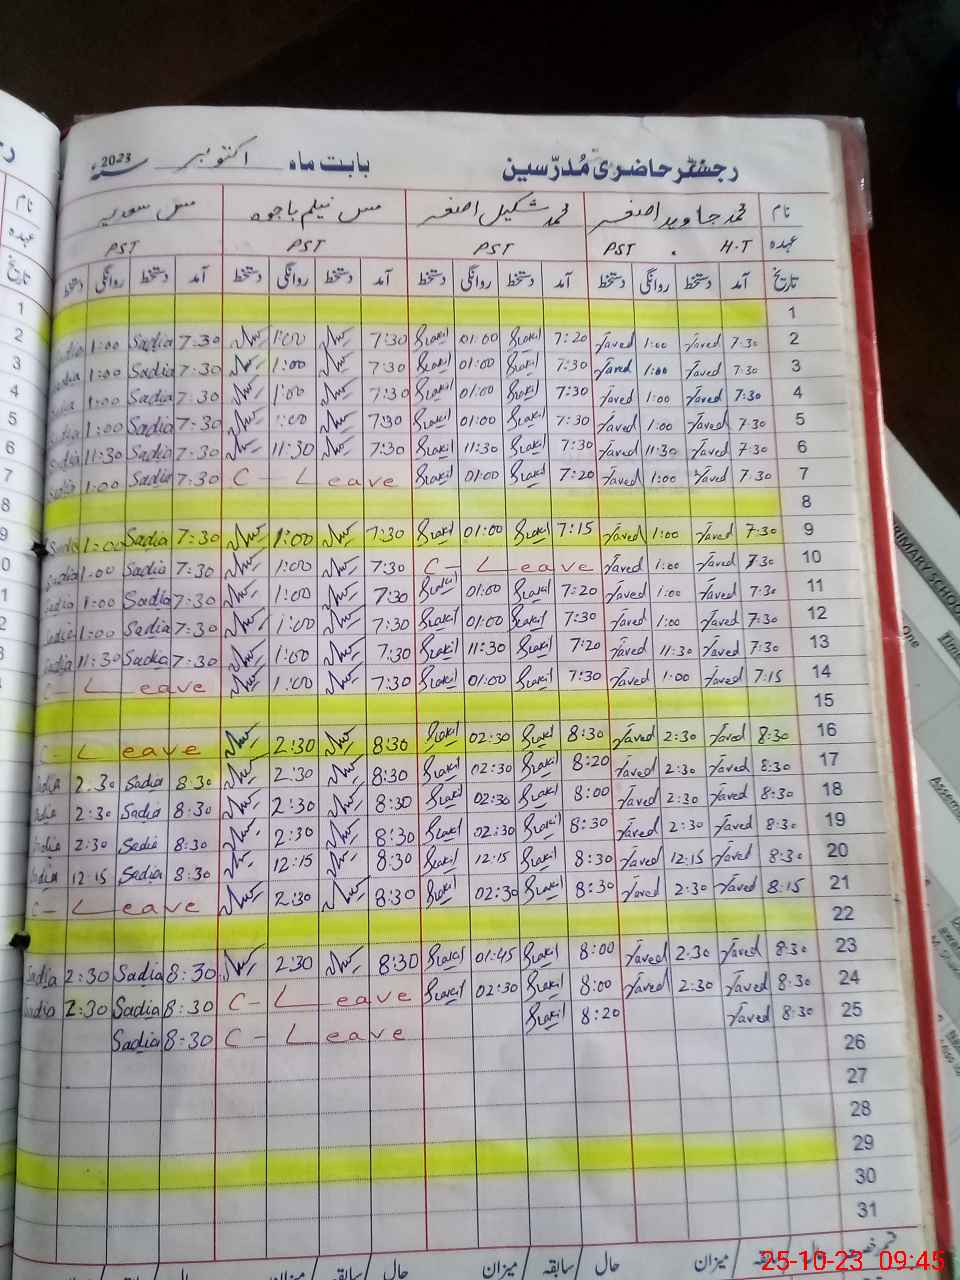 رجسٹر حاضری مُدرّسین بابت ماہ اکتوبر سنہ 2023ء
نام محمد جاوید اصغر محمد شکیل اصغر مس نیلم باجوہ مس سعدیہ
عہدہ H.T . PST PST PST PST
تاریخ آمد دستخط روانگی دستخط آمد دستخط روانگی دستخط آمد دستخط روانگی دستخط آمد دستخط روانگی دستخط
1
2 7:30 Javed 1:00 Javed 7:20 Shakil 01:00 Shakil 7:30 1:00 7:30 Sadia 1:00 Sadia
3 7:30 Javed 1:00 Javed 7:30 Shakil 01:00 Shakil 7:30 1:00 7:30 Sadia 1:00 Sadia
4 7:30 Javed 1:00 Javed 7:30 Shakil 01:00 Shakil 7:30 1:00 7:30 Sadia 1:00 Sadia
5 7:30 Javed 1:00 Javed 7:30 Shakil 01:00 Shakil 7:30 1:00 7:30 Sadia 1:00 Sadia
6 7:30 Javed 11:30 Javed 7:30 Shakil 11:30 Shakil 7:30 11:30 7:30 Sadia 11:30 Sadia
7 7:30 Javed 1:00 Javed 7:20 Shakil 01:00 Shakil C - Leave 7:30 Sadia 1:00 Sadia
8
9 7:30 Javed 1:00 Javed 7:15 Shakil 01:00 Shakil 7:30 1:00 7:30 Sadia 1:00 Sadia
10 7:30 Javed 1:00 Javed C - Leave 7:30 1:00 7:30 Sadia 1:00 Sadia
11 7:30 Javed 1:00 Javed 7:20 Shakil 01:00 Shakil 7:30 1:00 7:30 Sadia 1:00 Sadia
12 7:30 Javed 1:00 Javed 7:30 Shakil 01:00 Shakil 7:30 1:00 7:30 Sadia 1:00 Sadia
13 7:30 Javed 11:30 Javed 7:20 Shakil 11:30 Shakil 7:30 1:00 7:30 Sadia 11:30 Sadia
14 7:15 Javed 1:00 Javed 7:30 Shakil 01:00 Shakil 7:30 1:00 C - Leave
15
16 8:30 Javed 2:30 Javed 8:30 Shakil 02:30 Shakil 8:30 2:30 C - Leave
17 8:30 Javed 2:30 Javed 8:20 Shakil 02:30 Shakil 8:30 2:30 8:30 Sadia 2:30 Sadia
18 8:30 Javed 2:30 Javed 8:00 Shakil 02:30 Shakil 8:30 2:30 8:30 Sadia 2:30 Sadia
19 8:30 Javed 2:30 Javed 8:30 Shakil 02:30 Shakil 8:30 2:30 8:30 Sadia 2:30 Sadia
20 8:30 Javed 12:15 Javed 8:30 Shakil 12:15 Shakil 8:30 12:15 8:30 Sadia 12:15 Sadia
21 8:15 Javed 2:30 Javed 8:30 Shakil 02:30 Shakil 8:30 2:30 C - Leave
22
23 8:30 Javed 2:30 Javed 8:00 Shakil 01:45 Shakil 8:30 2:30 8:30 Sadia 2:30 Sadia
24 8:30 Javed 2:30 Javed 8:00 Shakil 02:30 Shakil C - Leave 8:30 Sadia 2:30 Sadia
25 8:30 Javed 8:20 Shakil C - Leave 8:30 Sadia
26
27
28
29
30
31
حال سابقہ میزان حال سابقہ میزان حال سابقہ میزان
25-10-23 09:45